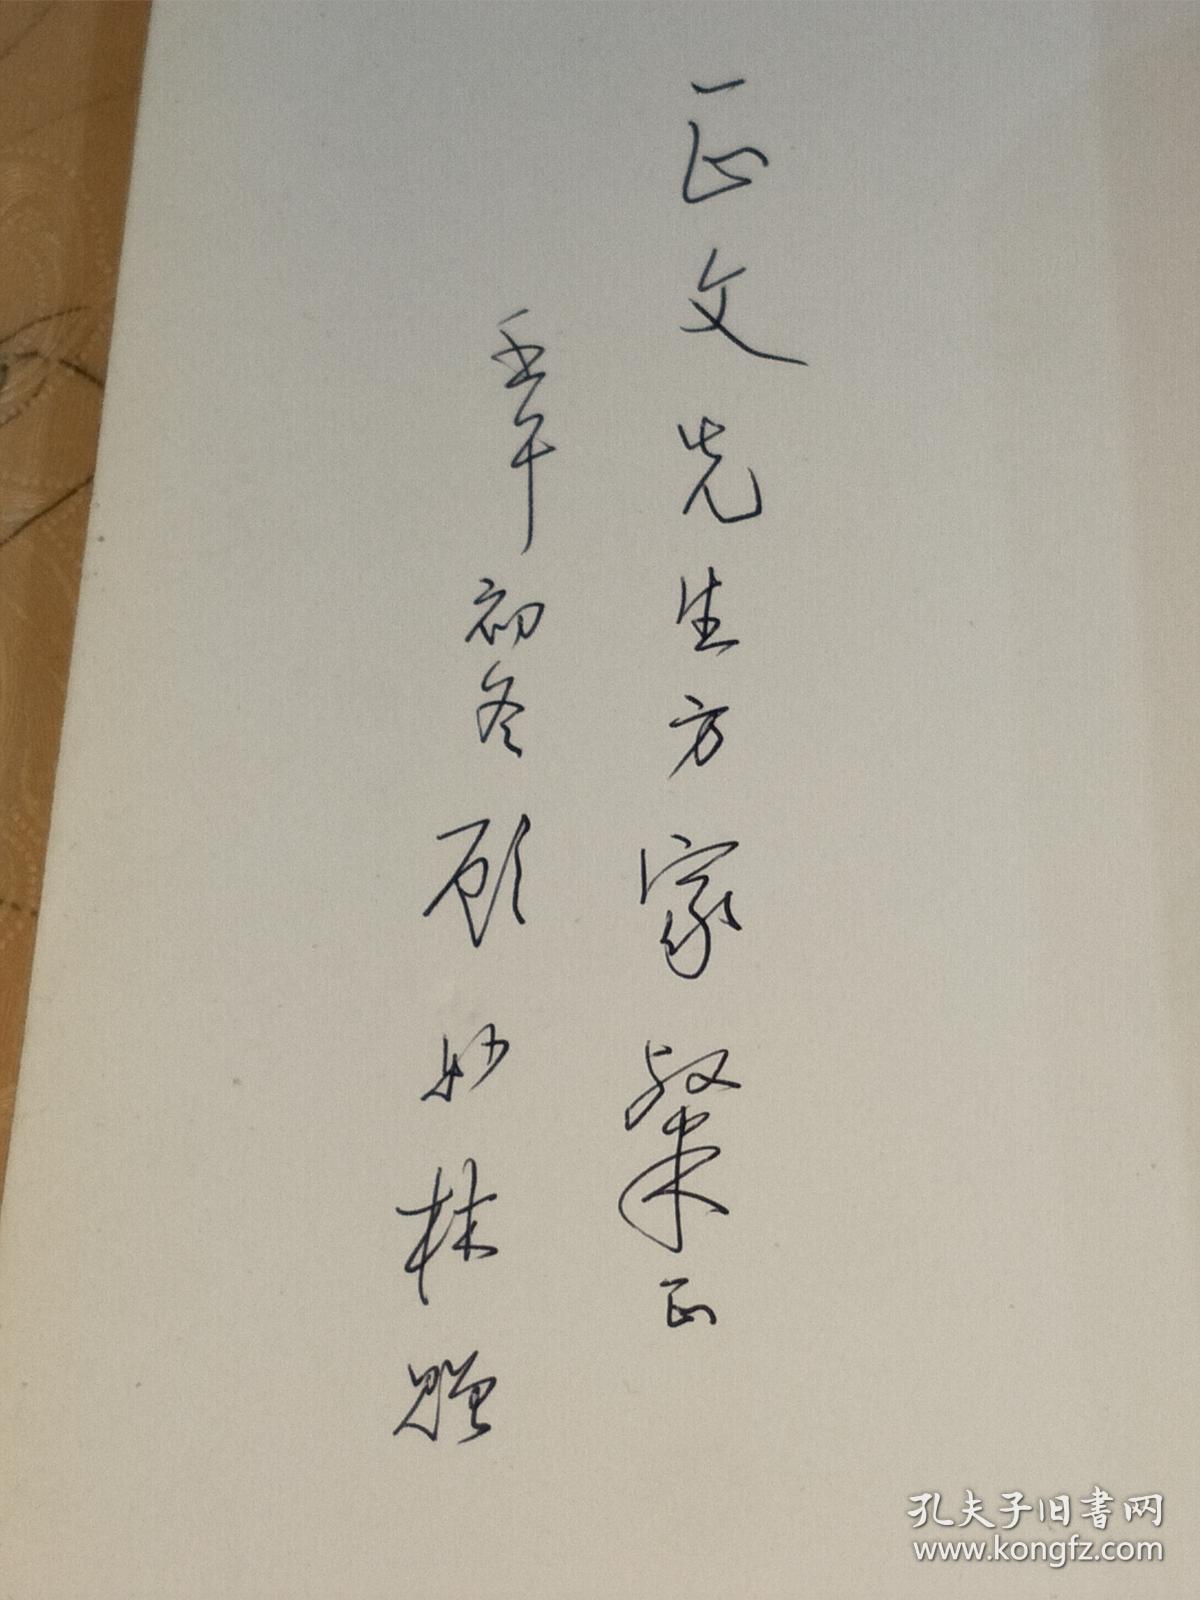 正文先生方家粲正
壬午初冬 顾妙林赠
孔夫子旧书网
www.kongfz.com